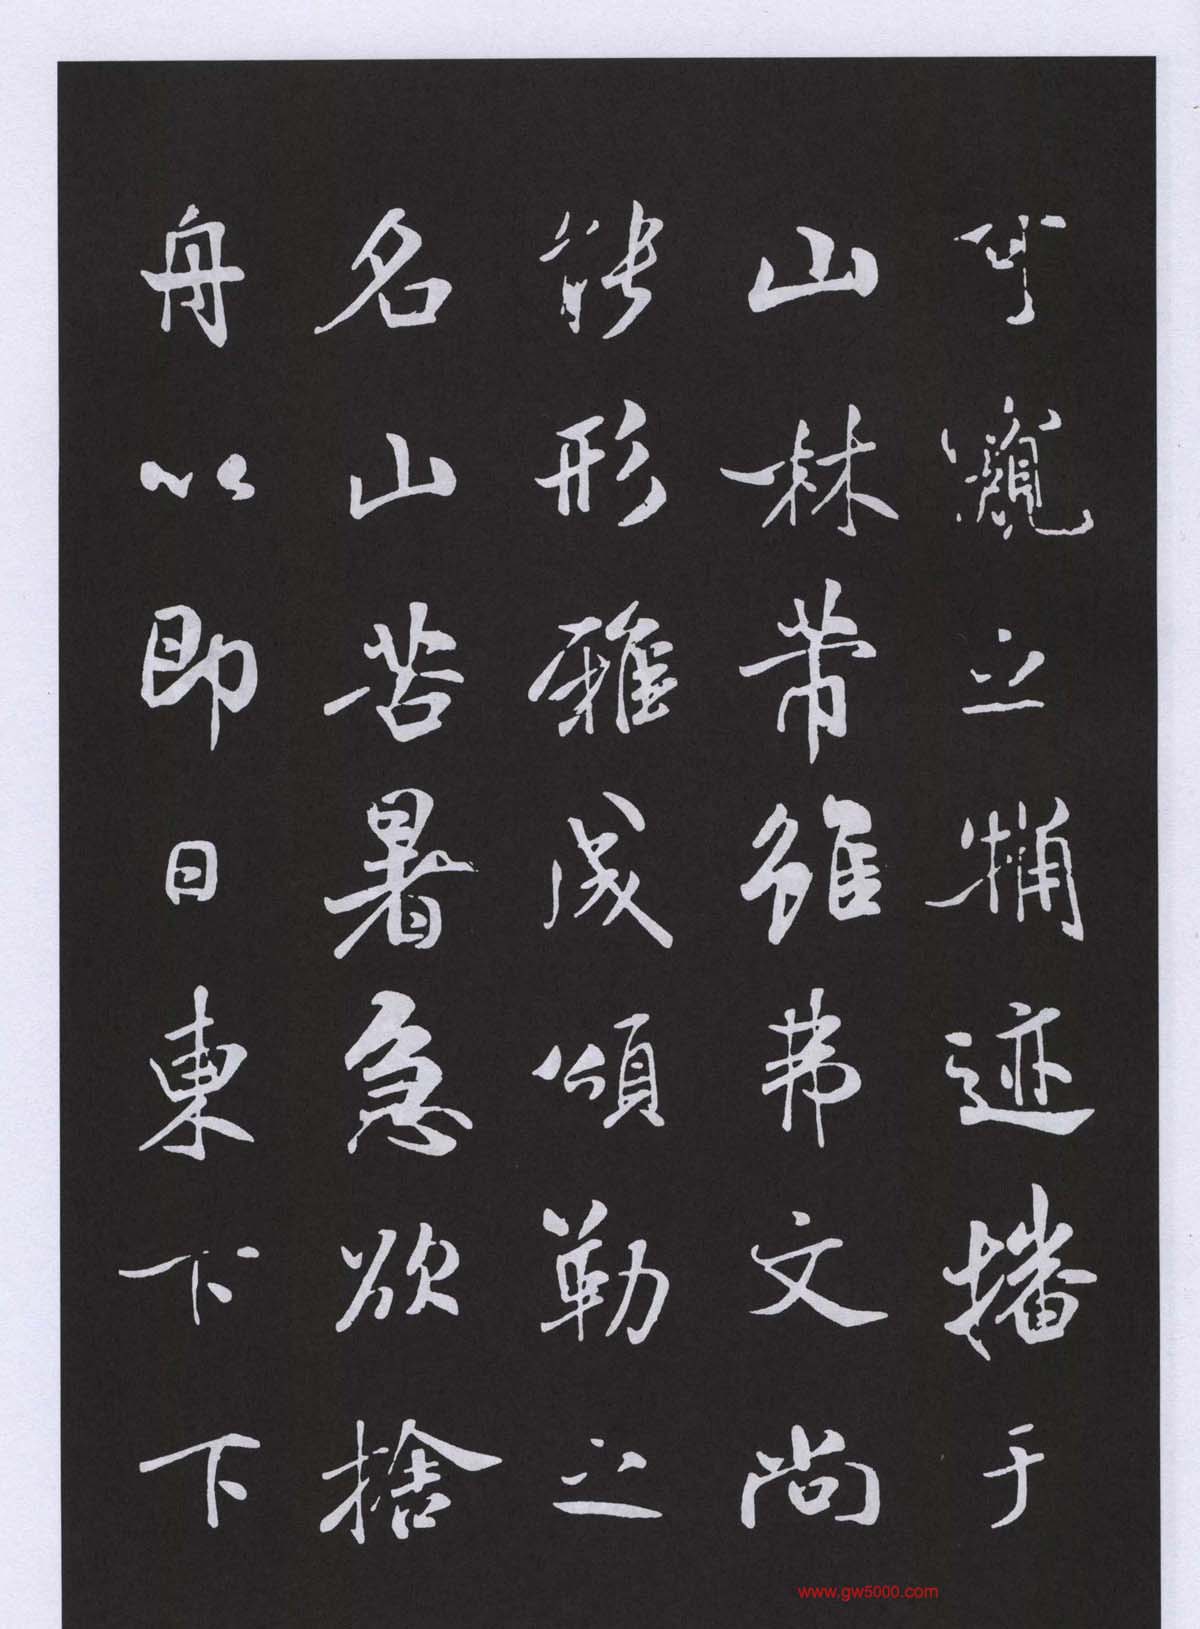 可窺之犕迹播于
山林帶雖弗文尚
能形雅成頌勒之
名山苦暑急欲捨
舟以即日東下下
www.gw5000.com